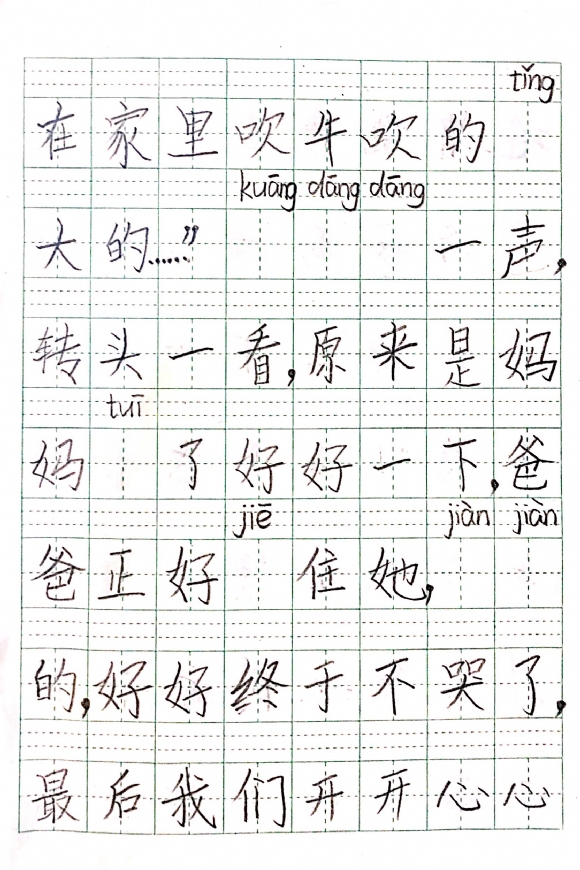 tǐng
在家里吹牛吹的
kuāng dāng dāng
大的……” 一声，
转头一看，原来是妈
tuī
妈 了好好一下，爸
jiē jiàn jiàn
爸正好 住她，
的，好好终于不哭了，
最后我们开开心心